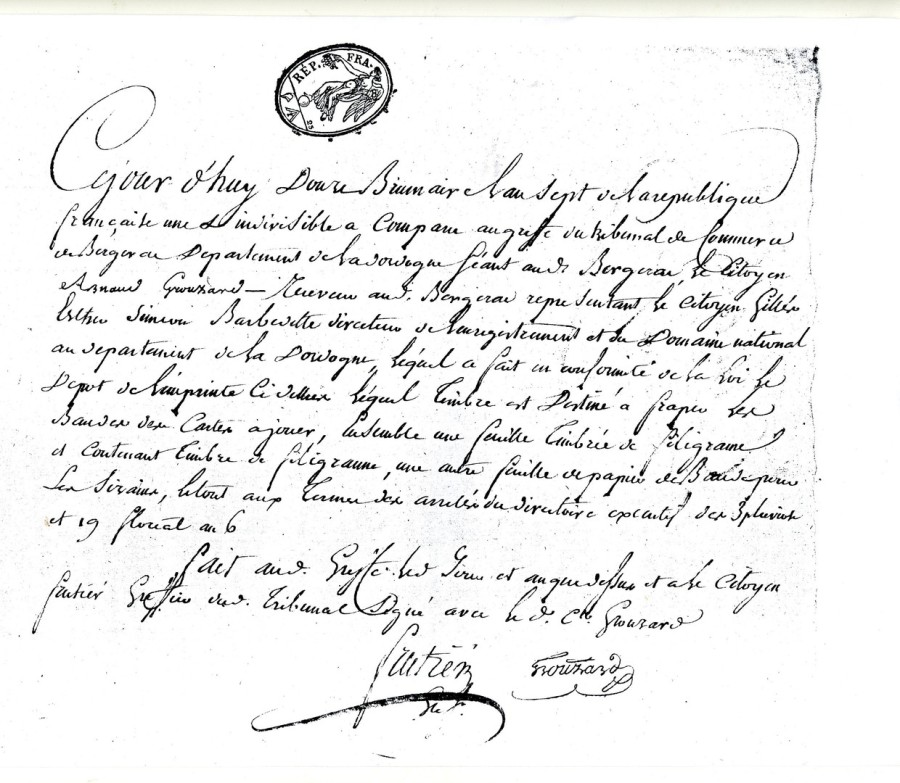 RÉP. FRA.
25
Cejour d'huy Douze Brumaire L'an Sept de la republique
française une & indivisible a Comparu au greffe du tribunal de Commerce
de Bergerac Departement de la dordogne Séant aud. Bergerac le Citoyen
Arnaud Grouzard — Receveur aud. Bergerac representant le Citoyen Gilles
Esther Simeon Barbedette directeur de l'enregistrement et du Domaine national
au departement de la Dordogne, lequel a fait en conformité de la Loi le
Depot de l'empreinte Ci dessus lequel Timbre est Destiné a fraper les
Bandes des Cartes a jouer, Ensemble une feuille Timbrée de filigrame
et Contenant Timbre de filigranne, une autre feuille de papier de
Les Sixains, le tout aux Termes des arretés du directoire executif des 3 pluviose
et 19 floréal an 6
fait aud. Greffe led. Jour et an que dessus et a le Citoyen
Gautier Greffier dud. Tribunal Signé avec le d. Cit. Grouzard
Gautier Grouzard
Gref.